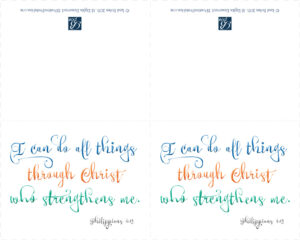 I can do all things
through Christ
who strengthens me.
Philippians 4:13
I can do all things
through Christ
who strengthens me.
Philippians 4:13